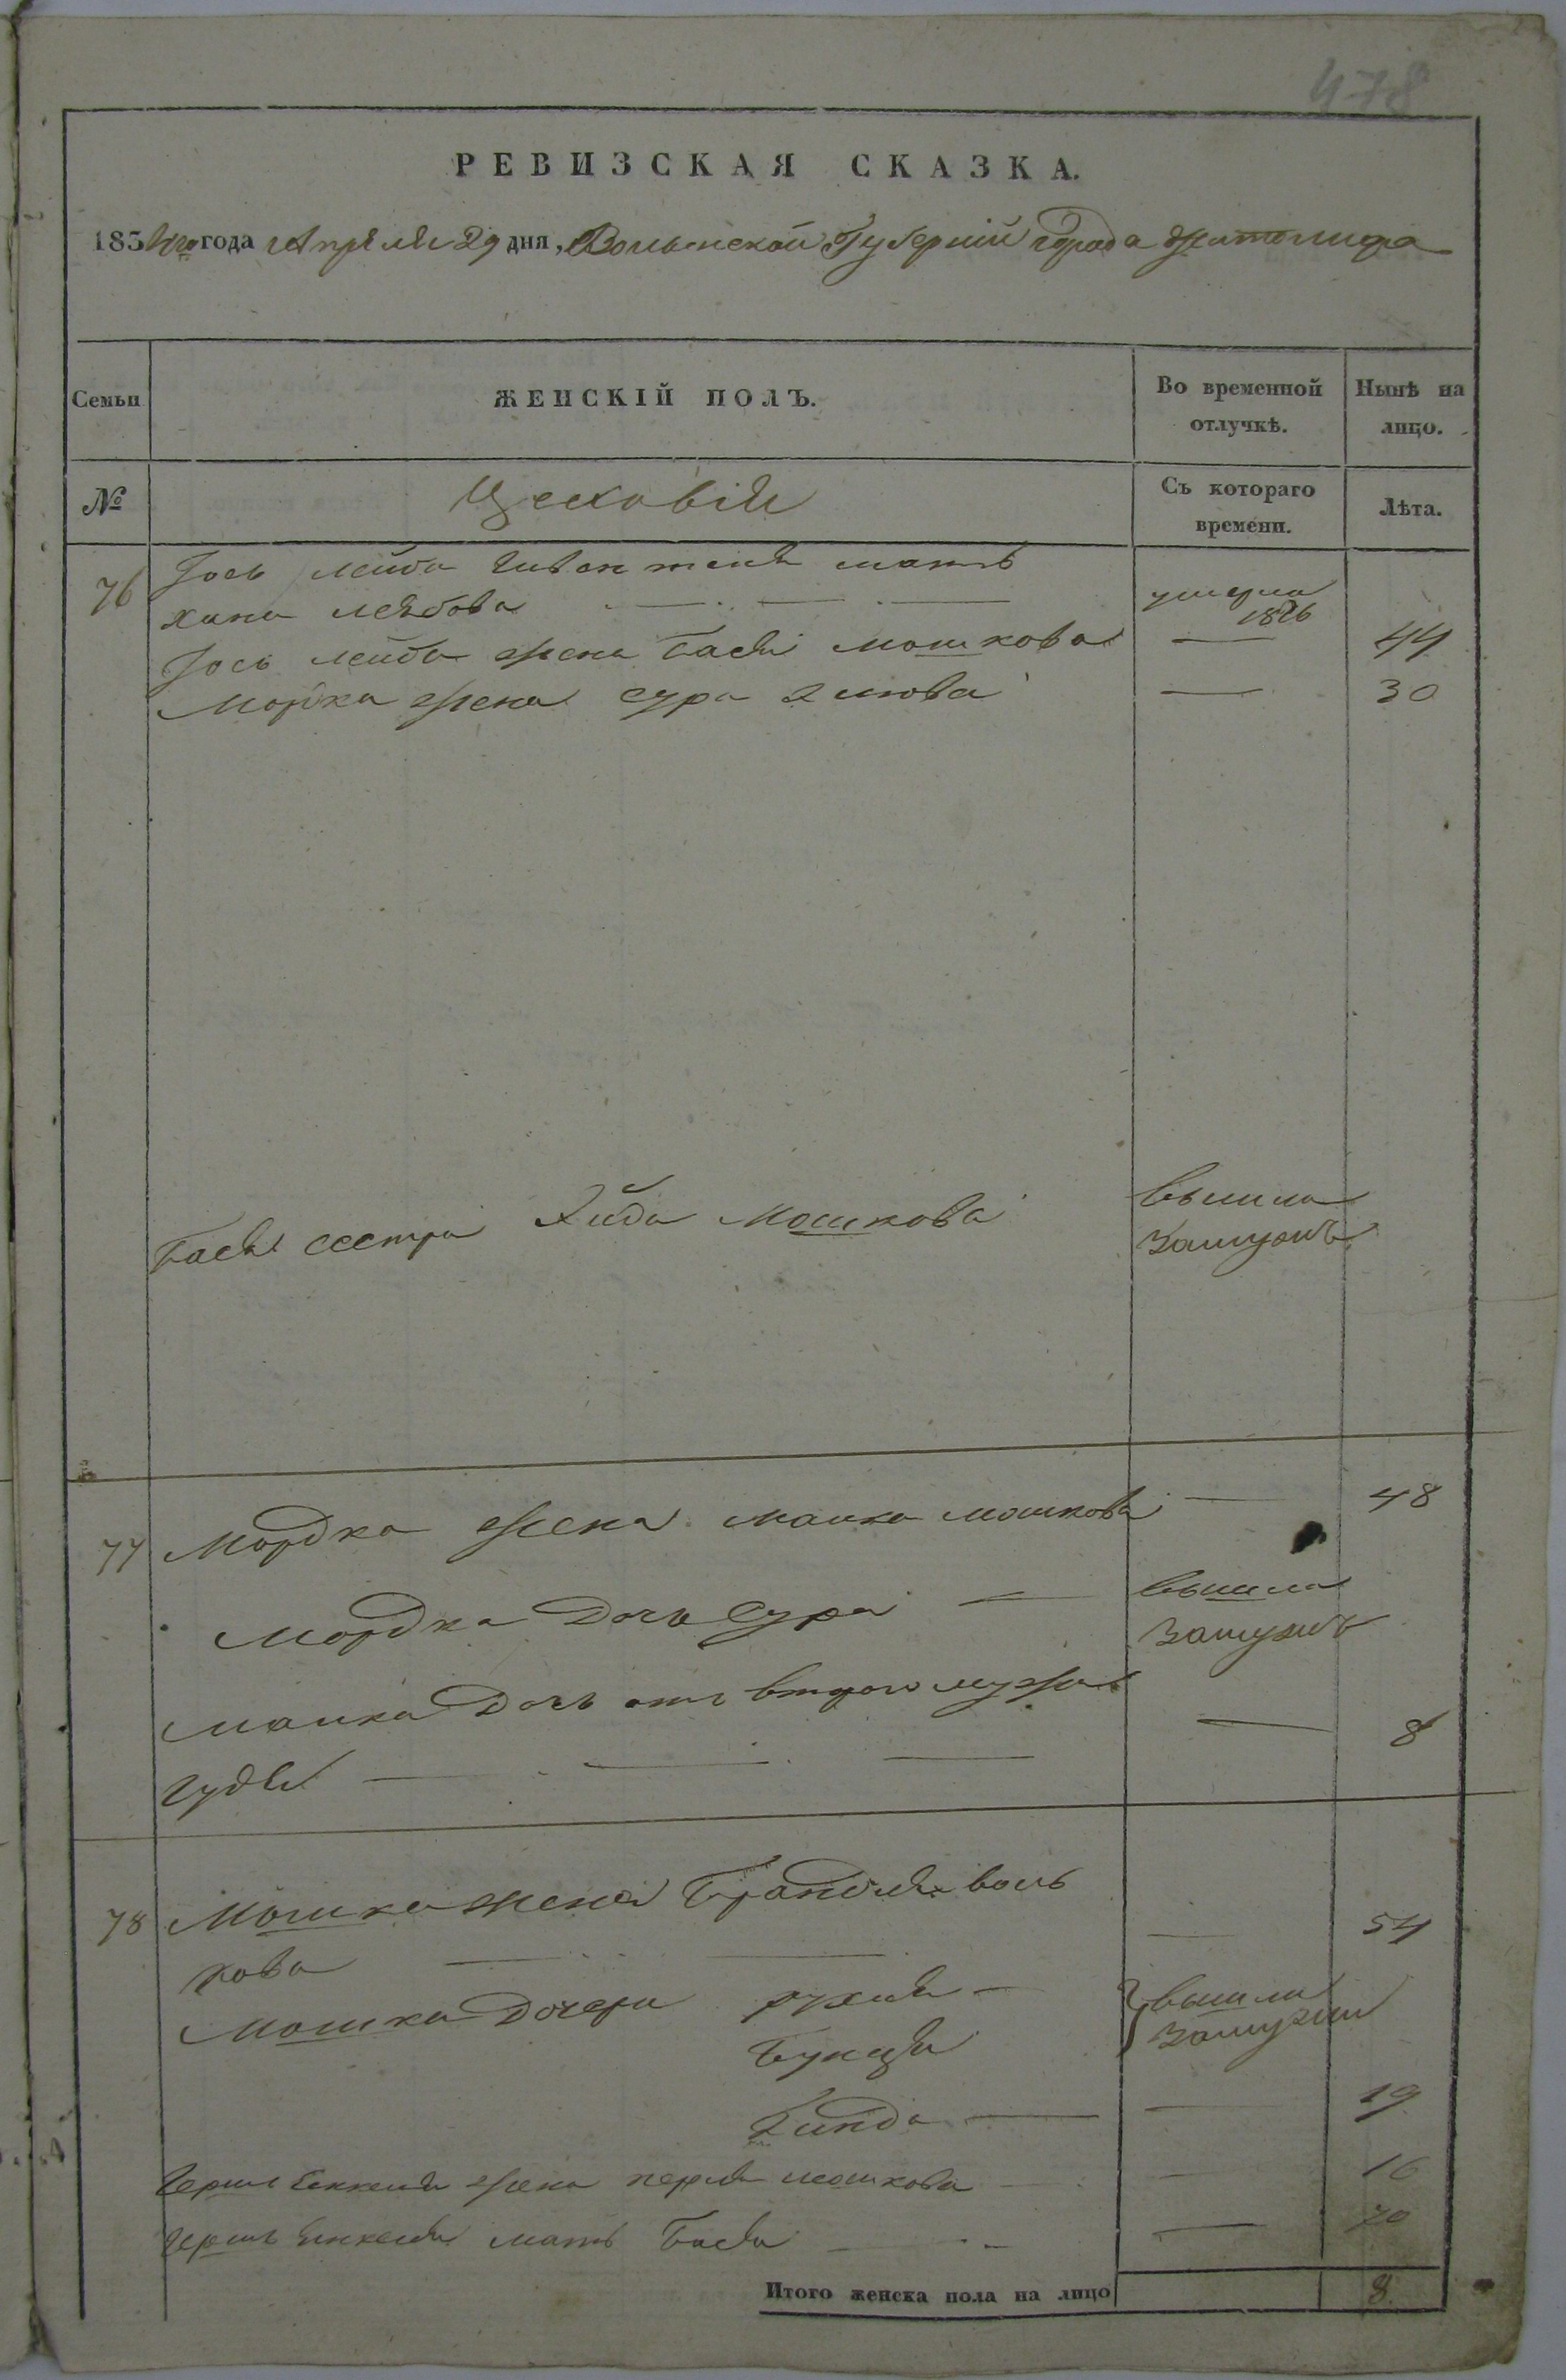 478
РЕВИЗСКАЯ СКАЗКА.
1834го года Апреля 29 дня, Волынской Губерніи города Житомира
Семьи
ЖЕНСКІЙ ПОЛЪ.
Во временной отлучкѣ.
Нынѣ на лицо.
№
Цеховія
Съ котораго времени.
Лѣта.
76 Іось Лейба мать
Хана Лейбова — — — умерла 1826
Іось Лейба жена Бася Мошкова — 44
Мордка жена Сура — 30
Бася сестра Мошкова вышла замужъ
77 Мордка жена Малка Мошкова — 48
Мордка дочь Сура — вышла замужъ
Малка дочь отъ второго мужа
— — — — 8
78 Мошка жена Брандля Воль
кова — — — 54
Мошка дочери Рухля — вышли замужи
Бунця
Хинда — — 19
Герш жена Перля Мошкова — — 16
Герш Янкеля мать Бася — — 70
Итого женска пола на лицо 8.